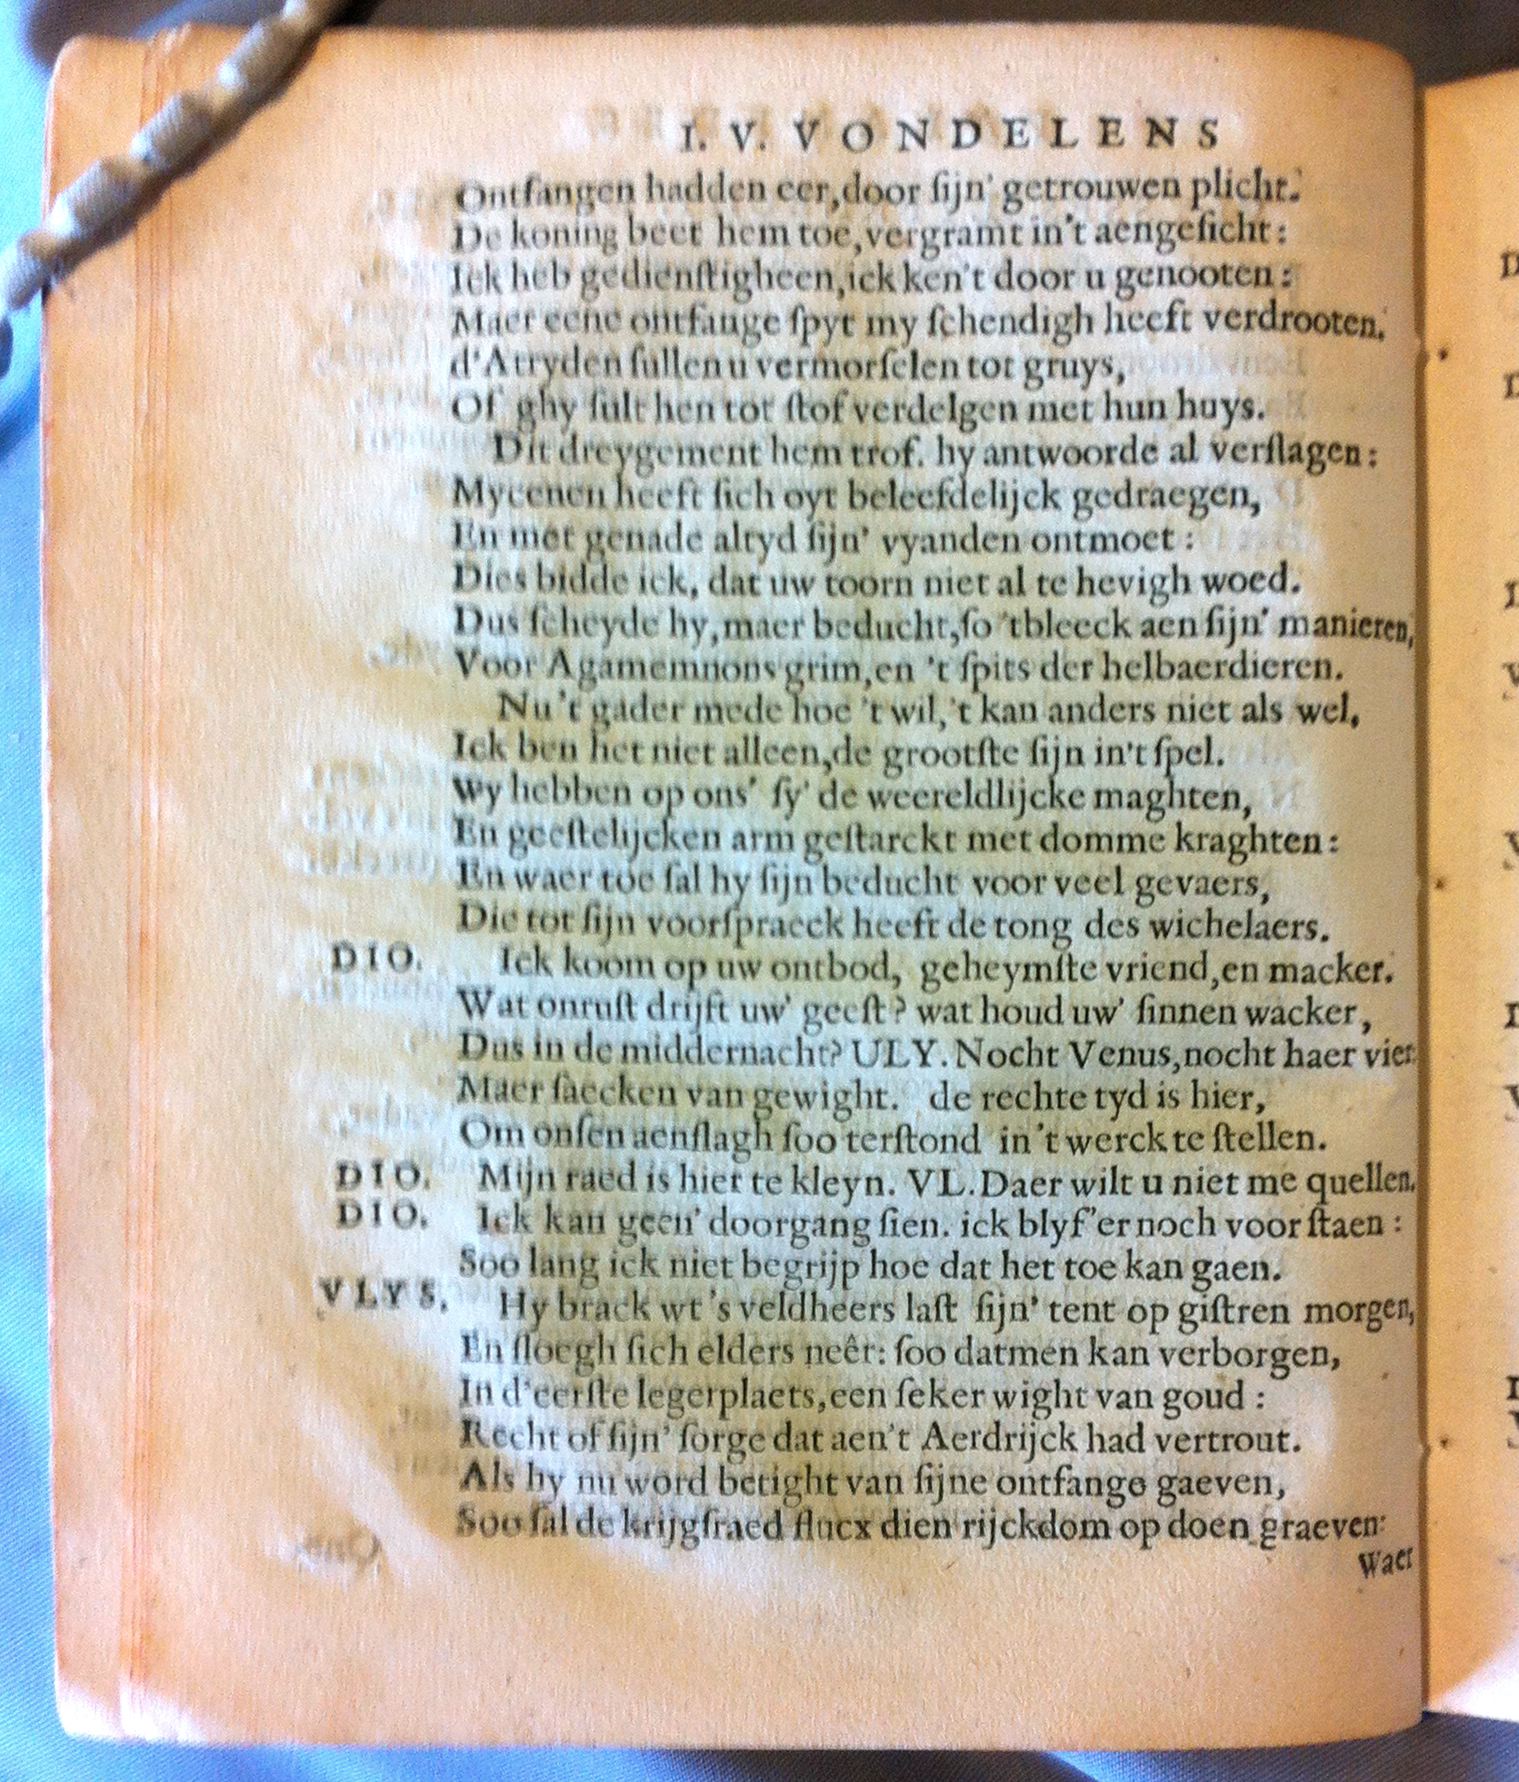 I. V. VONDELENS
Ontfangen hadden eer,door ſijn' getrouwen plicht.
De koning beet hem toe,vergramt in't aengeſicht:
Ick heb gedienſtigheen,ick ken't door u genooten:
Maer eene ontfange ſpyt my ſchendigh heeft verdrooten.
d'Atryden ſullen u vermorſelen tot gruys,
Of ghy ſult hen tot ſtof verdelgen met hun huys.
Dit dreygement hem trof. hy antwoorde al verſlagen:
Mycenen heeft ſich oyt beleefdelijck gedraegen,
En met genade altyd ſijn' vyanden ontmoet:
Dies bidde ick, dat uw toorn niet al te hevigh woed.
Dus ſcheyde hy,maer beducht,ſo 'tbleeck aen ſijn' manieren,
Voor Agamemnons grim,en 't ſpits der helbaerdieren.
Nu 't gader mede hoe 't wil,'t kan anders niet als wel,
Ick ben het niet alleen,de grootſte ſijn in't ſpel.
Wy hebben op ons' ſy' de weereldlijcke maghten,
En geeſtelijcken arm geſtarckt met domme kraghten:
En waer toe ſal hy ſijn beducht voor veel gevaers,
Die tot ſijn voorſpraeck heeft de tong des wichelaers.
DIO. Ick koom op uw ontbod, geheymſte vriend,en macker.
Wat onruſt drijft uw' geeſt? wat houd uw' ſinnen wacker,
Dus in de middernacht? ULY. Nocht Venus,nocht haer vier
Maer ſaecken van gewight. de rechte tyd is hier,
Om onſen aenſlagh ſoo terſtond in't werck te ſtellen.
DIO. Mijn raed is hier te kleyn. VL. Daer wilt u niet me quellen.
DIO. Ick kan geen' doorgang ſien. ick blyf'er noch voor ſtaen:
Soo lang ick niet begrijp hoe dat het toe kan gaen.
VLYS. Hy brack wt 's veldheers laſt ſijn' tent op giſtren morgen,
En ſloegh ſich elders neêr: ſoo datmen kan verborgen,
In d'eerſte legerplaets,een ſeker wight van goud:
Recht of ſijn' ſorge dat aen't Aerdrijck had vertrout.
Als hy nu word betight van ſijne ontfange gaeven,
Soo ſal de krijgſraed flucx dien rijckdom op doen graeven:
Waer